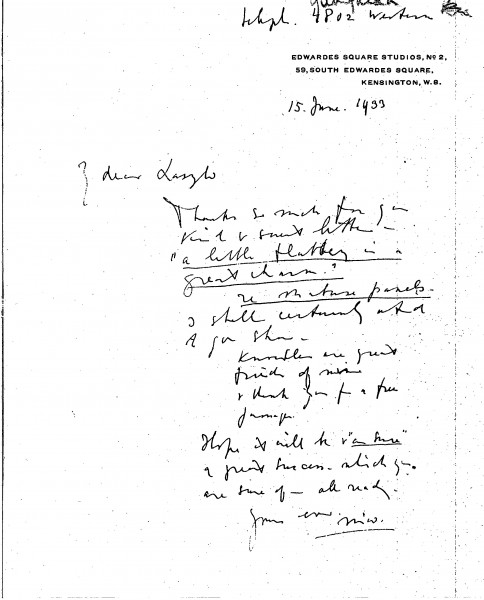 Teleph. 4802 Western
EDWARDES SQUARE STUDIOS, No 2,
59, SOUTH EDWARDES SQUARE,
KENSINGTON, W.8.
15. June. 1933
My dear Laszlo
Thanks so much for your
kind & sweet letter -
"a little flattery is a
great charm."
re miniature panels.
I shall certainly attend
to your show -
Knoedler are great
friends of mine
& thank you for a free
passage.
Hope it will be
a great success. which you
are sure of - already.
Yours ever